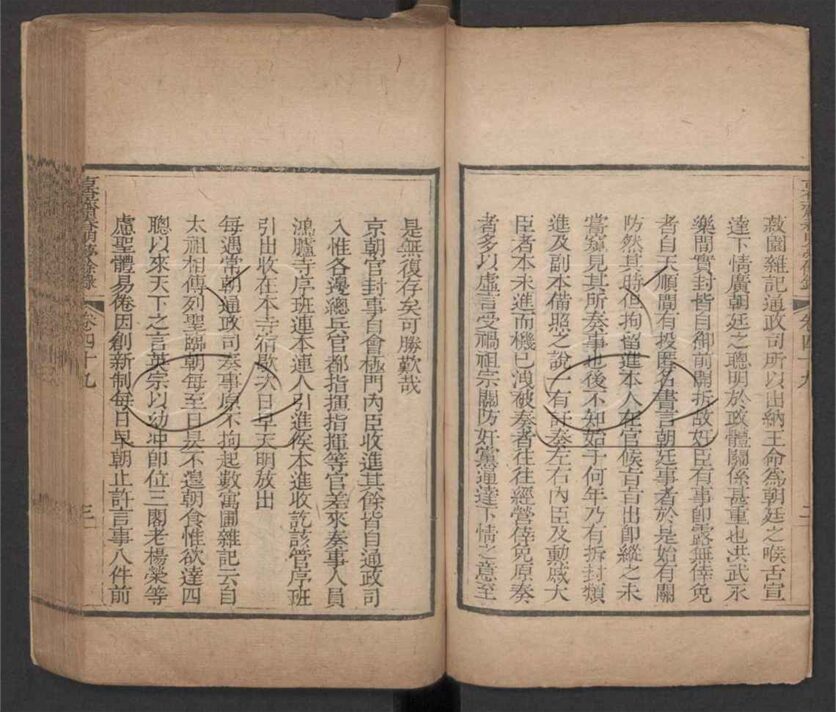 菽園雜記通政司所以出納王命為朝廷之喉舌宣
達下情廣朝廷之聰明於政體關係甚重也洪武永
樂間實封皆自御前開拆故奸臣有事卽露無倖免
者自天順間有投匿名書言朝廷事者於是始有關
防然其時但拘畱進本人在官候旨出卽縱之未
嘗窺見其所奏事也後不知始于何年乃有拆封類
進及副本備照之說一有訐奏左右內臣及勳戚大
臣者本未進而機已洩被奏者往往經營倖免原奏
者多以虛言受禍祖宗關防奸黨通達下情之意至
二
春明夢餘錄
卷四十九
三
是無復存矣可勝歎哉
京朝官封事自會極門內臣收進其餘皆自通政司
入惟各邊總兵官都指揮指揮等官差來奏事人員
鴻臚寺序班連本連人引進俟本進收訖該管序班
引出收在本寺宿歇次日早天明放出
每遇常朝通政司奏事原不拘起數寓圃雜記云自
太祖相傳列聖臨朝每至日昃不遑朝食惟欲達四
聰以來天下之言英宗以幼冲卽位三閣老楊榮等
慮聖體易倦因創新制每日早朝止許言事八件前